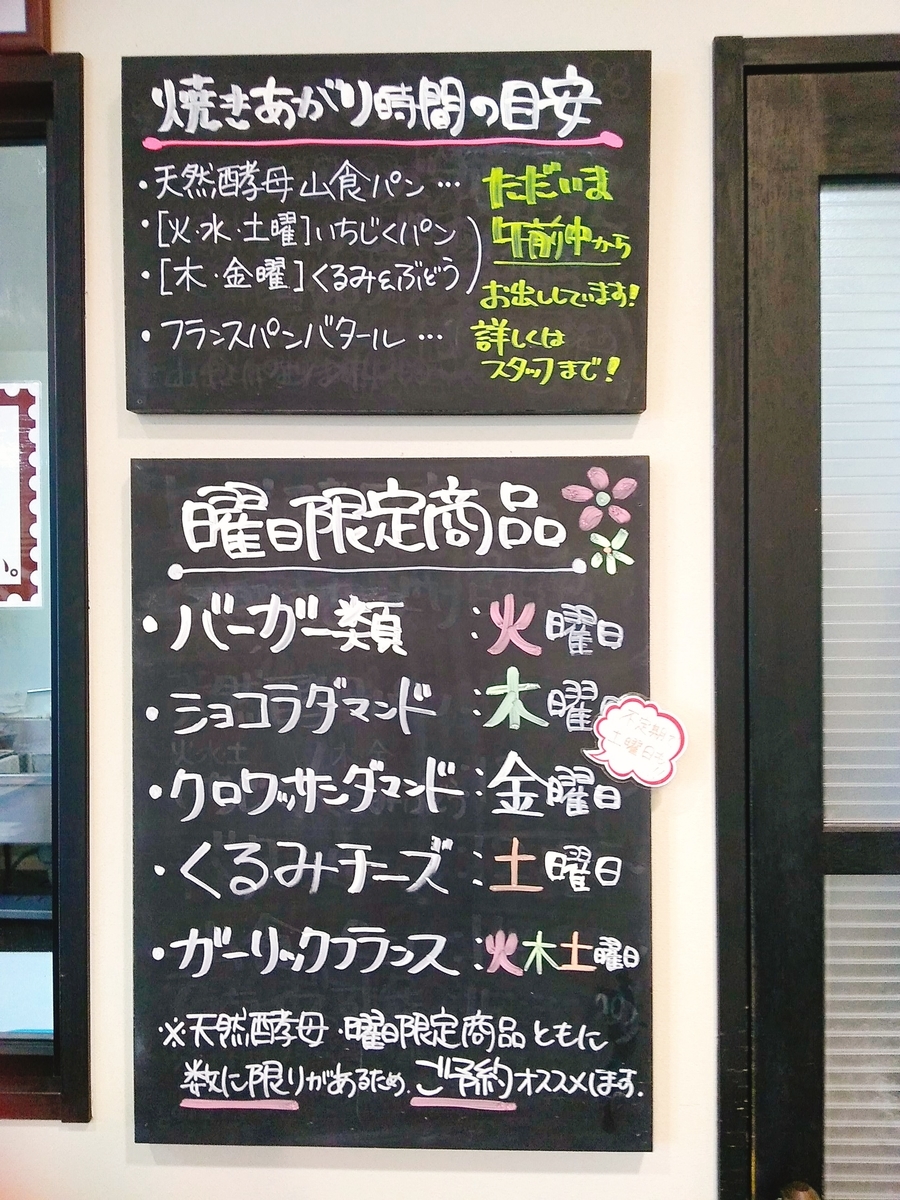 焼きあがり時間の目安
・天然酵母山食パン…
・[火・水・土曜]いちじくパン
・[木・金曜]くるみ&ぶどう
・フランスパンバタール…
ただいま
午前中から
お出ししています!
詳しくは
スタッフまで!
曜日限定商品
・バーガー類:火曜日
・ショコラダマンド:木曜
不定期で
土曜日も
・クロワッサンダマンド:金曜日
・くるみチーズ:土曜日
・ガーリックフランス:火木土曜日
※天然酵母・曜日限定商品ともに
数に限りがあるため、ご予約オススメします。
い。